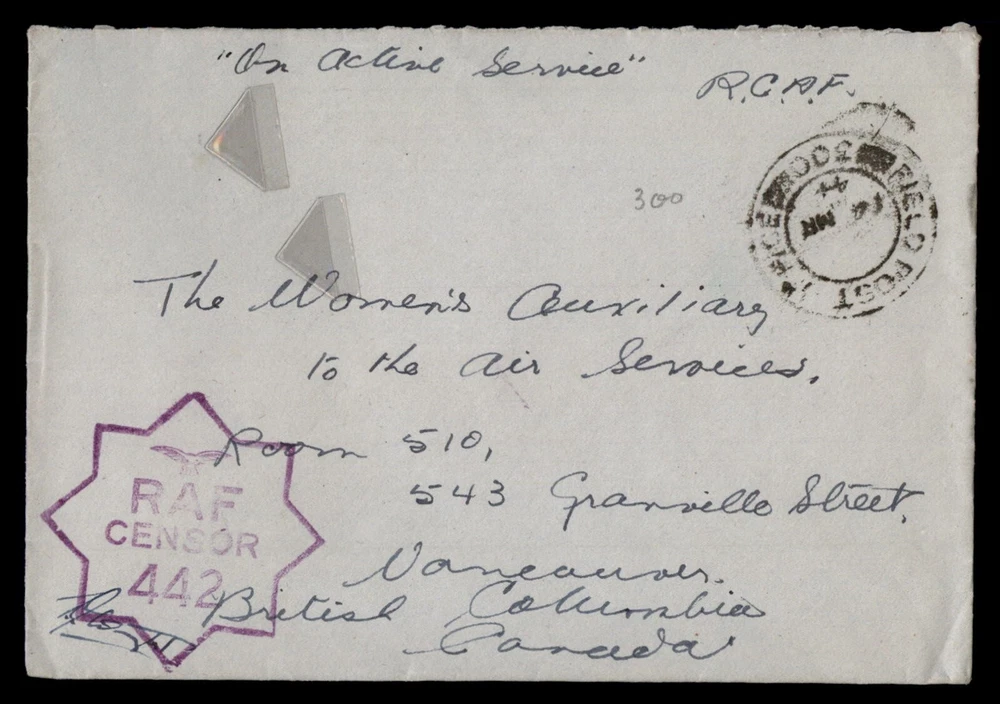 "On Active Service"
R.C.A.F.
FIELD POST OFFICE
MR
44
300
The Women's Auxiliary
to the Air Services.
Room 510,
543 Granville Street.
Vancouver.
British Columbia
Canada
RAF
CENSOR
442